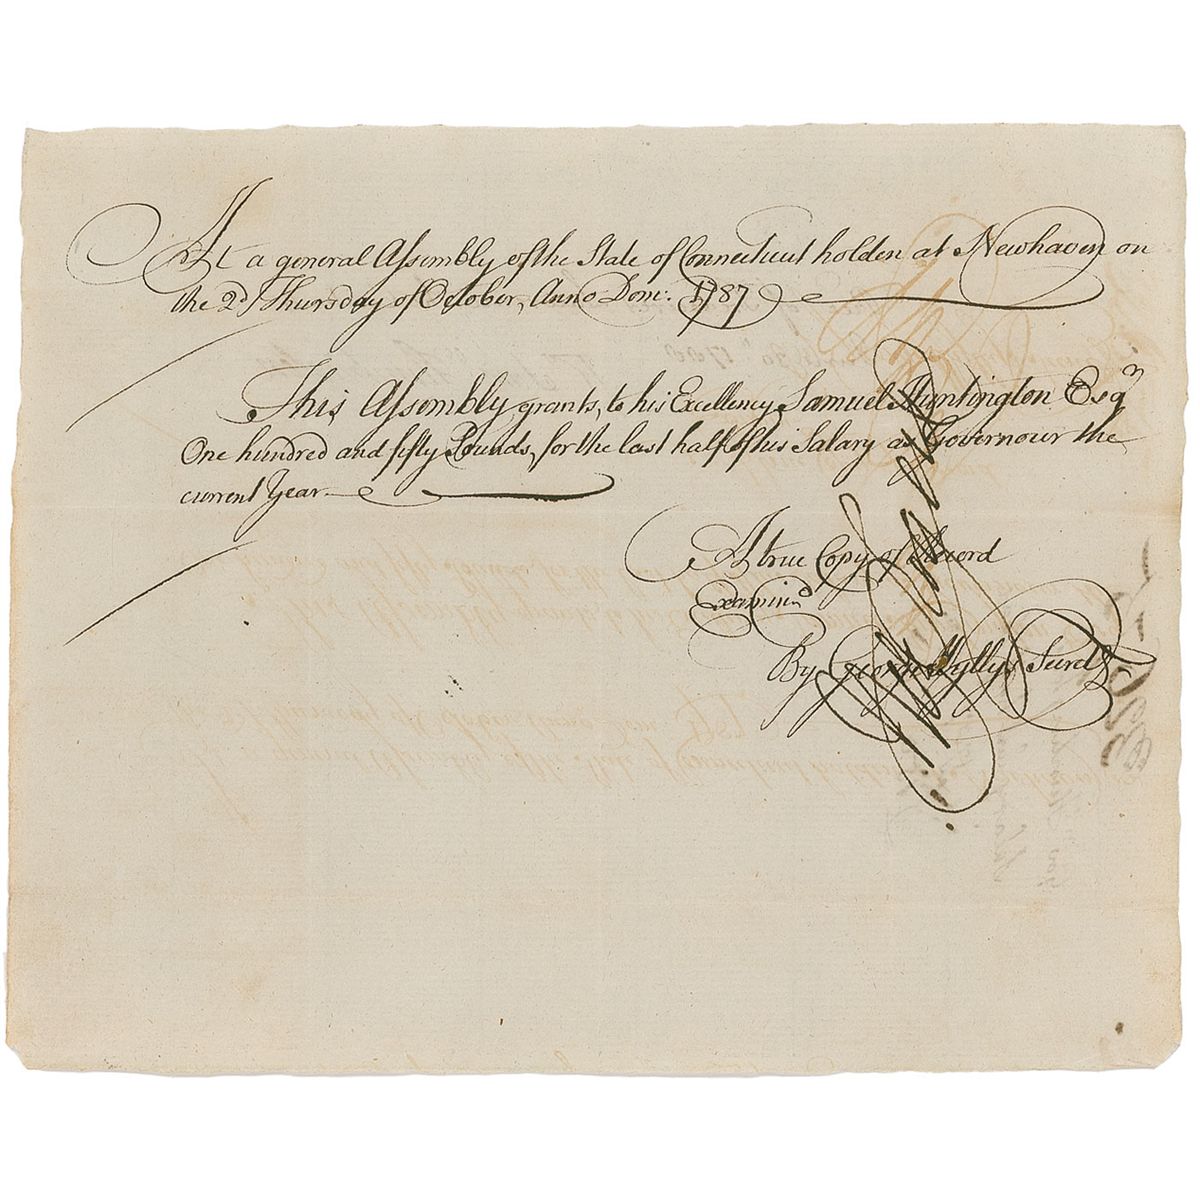 At a general Assembly of the State of Connecticut holden at Newhaven on
the 2d. Thursday of October, Anno Dom: 1787
This Assembly grants, to his Excellency Samuel Huntington Esqr
One hundred and fifty Pounds, for the last half of his Salary as Governour the
current Year.
A true Copy of Record
Examind
By George Wyllys Secret